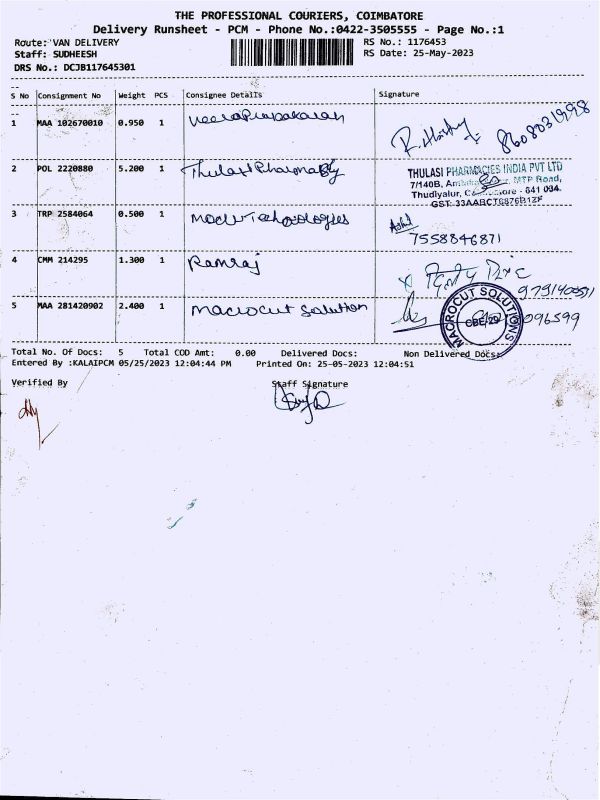 THE PROFESSIONAL COURIERS, COIMBATORE
Delivery Runsheet - PCM - Phone No.:0422-3505555 - Page No.:1
Route: VAN DELIVERY RS No.: 1176453
Staff: SUDHEESH RS Date: 25-May-2023
DRS No.: DCJB117645301
S No Consignment No Weight PCS Consignee Details Signature
1 MAA 102670010 0.950 1 Veeraprabakaran 8608031998
2 POL 2220880 5.200 1 Thulasi Pharma
THULASI PHARMACIES INDIA PVT LTD
7/140B, MTP Road,
Thudiyalur, - 641 034.
GST:
3 TRP 2584064 0.500 1 Technologies
7558846871
4 CMM 214295 1.300 1 Ramraj
5 MAA 281420902 2.400 1 Macrocut Solution
MACROCUT SOLUTIONS
CBE-29
096599
Total No. Of Docs: 5 Total COD Amt: 0.00 Delivered Docs: Non Delivered Docs:
Entered By :KALAIPCM 05/25/2023 12:04:44 PM Printed On: 25-05-2023 12:04:51
Verified By Staff Signature